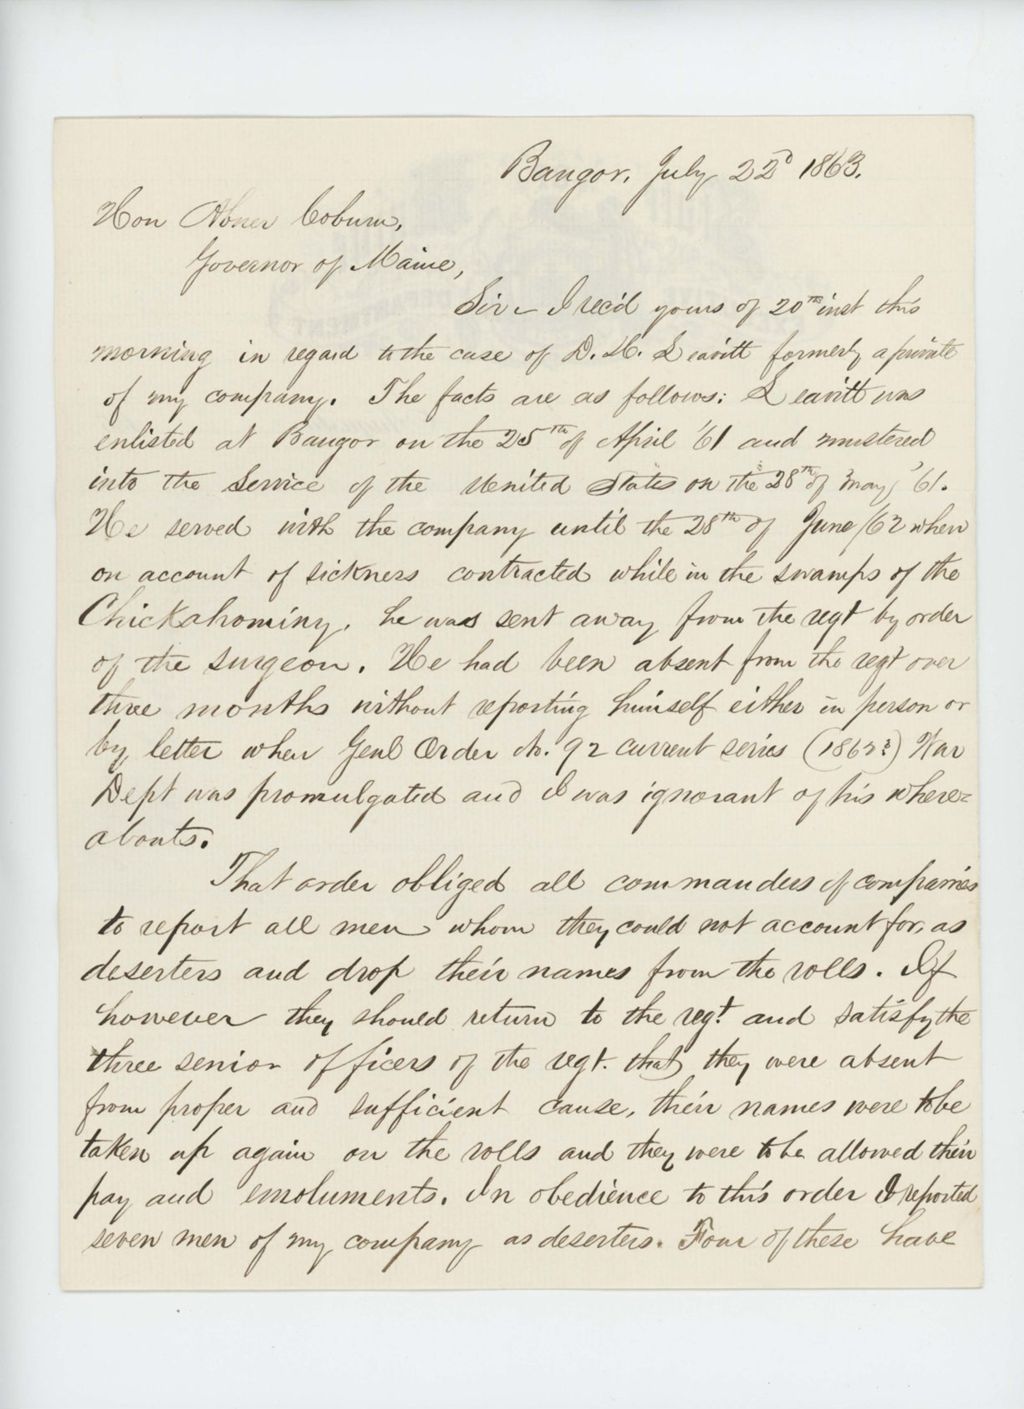 Bangor, July 22d 1863.
Hon Abner Coburn,
Governor of Maine,
Sir - I rec'd yours of 20th inst this
morning in regard to the case of D. H. Leavitt formerly a private
of my company. The facts are as follows: Leavitt was
enlisted at Bangor on the 25th of April '61 and mustered
into the Service of the United States on the 28th of May '61.
He served with the company until the 28th of June /62 when
on account of sickness contracted while in the swamps of the
Chickahominy, he was sent away from the regt by order
of the surgeon. He had been absent from the regt over
three months without reporting himself either in person or
by letter when Genl Order No. 92 current series (1862?) War
Dept was promulgated and I was ignorant of his where=
abouts.
That order obliged all commanders of companies
to report all men whom they could not account for, as
deserters and drop their names from the rolls. If
however they should return to the regt. and satisfy the
three senior officers of the regt. that they were absent
from proper and sufficient cause, their names were to be
taken up again on the rolls and they were to be allowed their
pay and emoluments. In obedience to this order I reported
seven men of my company as deserters. Four of these have